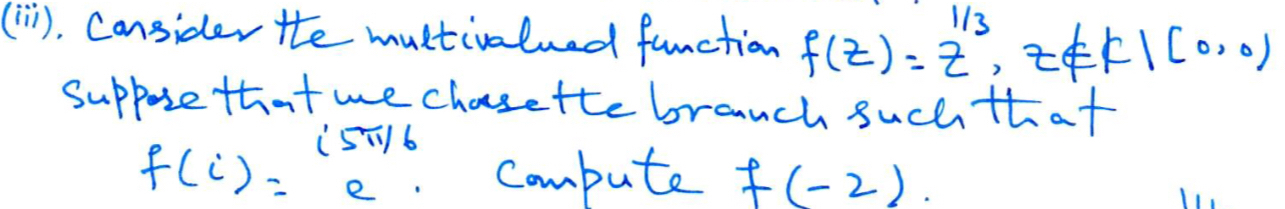 (iii). Consider the multivalued function f(z) = z^{1/3}, z∉ℂ\[0,∞)
Suppose that we choose the branch such that
f(i) = e^{i5π/6}. Compute f(-2).